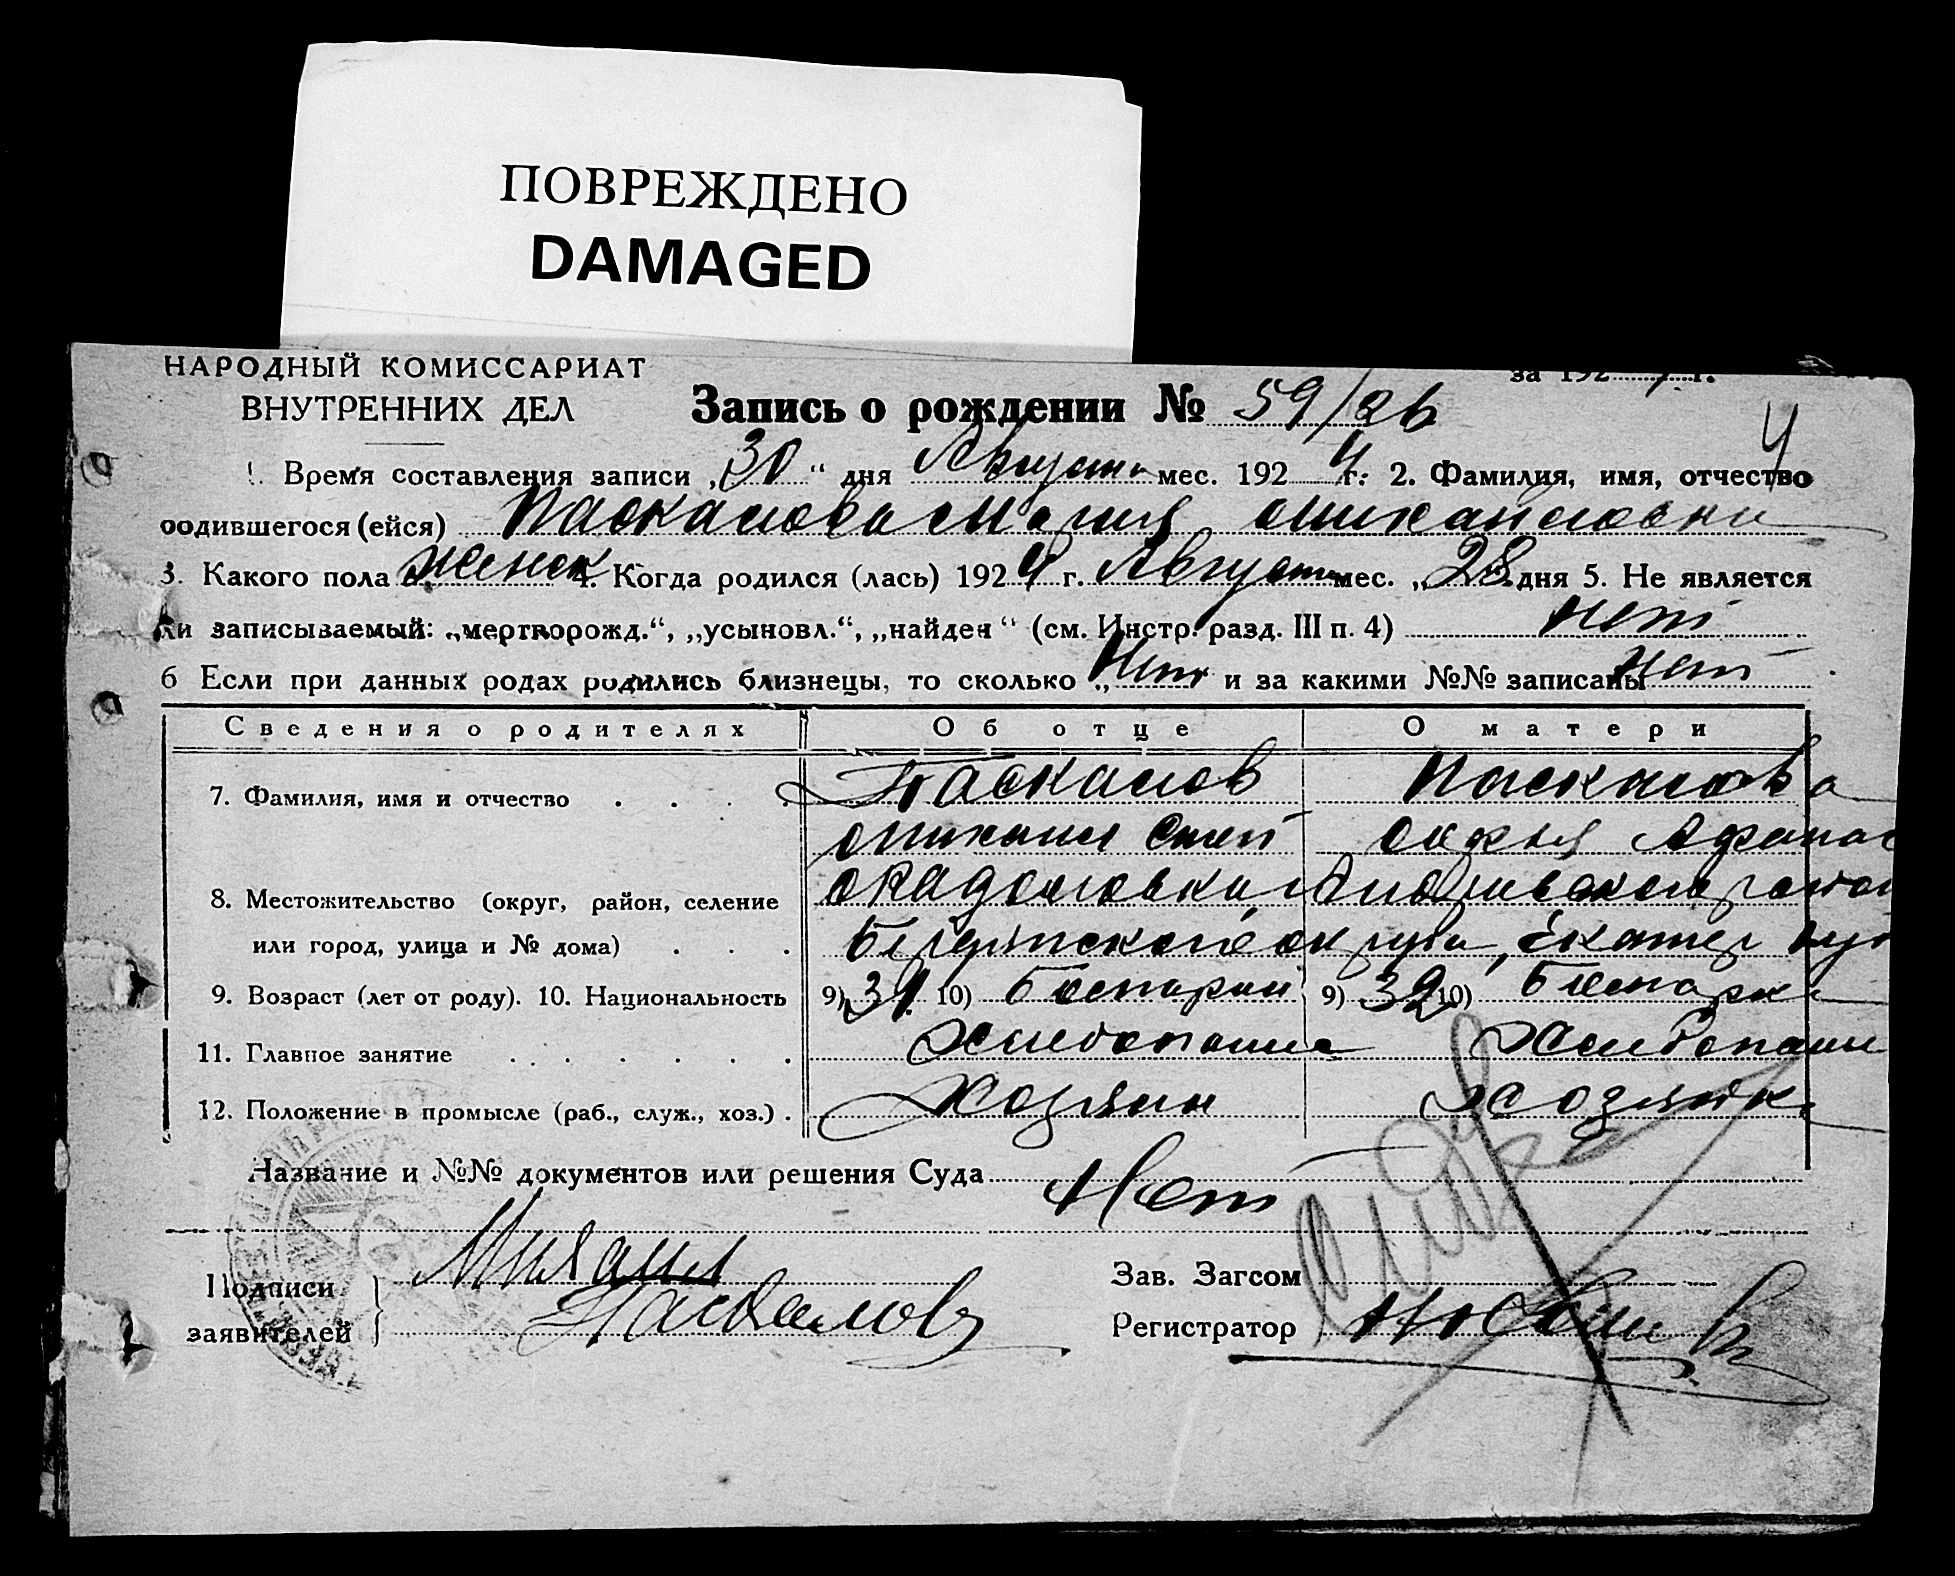 ПОВРЕЖДЕНО
DAMAGED
НАРОДНЫЙ КОМИССАРИАТ
ВНУТРЕННИХ ДЕЛ
за 192 г.
Запись о рождении № 59/26
4
1. Время составления записи „30“ дня Августа мес. 1924 г. 2. Фамилия, имя, отчество
родившегося (ейся) Паскалова Мария Михайловна
3. Какого пола женск 4. Когда родился (лась) 1924 г. Августа мес. „28 дня 5. Не является
ли записываемый: „мертворожд.“, „усыновл.“, „найден“ (см. Инстр. разд. III п. 4) нет
6 Если при данных родах родились близнецы, то сколько „нет и за какими №№ записаны нет
Сведения о родителях Об отце О матери
7. Фамилия, имя и отчество Паскалов Паскалова
Михаил Степ Афанас
8. Местожительство (округ, район, селение района
или город, улица и № дома) округа, Екатер
9. Возраст (лет от роду). 10. Национальность 9) 31 10) Болгарин 9) 32 10) Болгарка
11. Главное занятие Хлебопашец Хлебопаш
12. Положение в промысле (раб., служ., хоз.) Хозяин Хозяйка
Название и №№ документов или решения Суда Нет
Подписи Михаил Зав. Загсом
заявителей Паскалов Регистратор